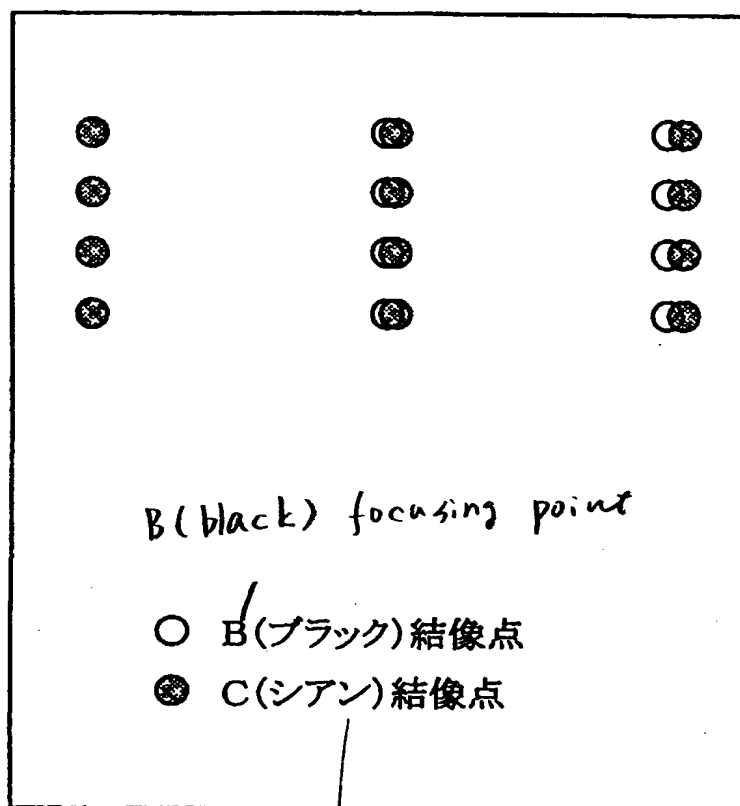 B(black) focusing point
B(ブラック)結像点
C(シアン)結像点